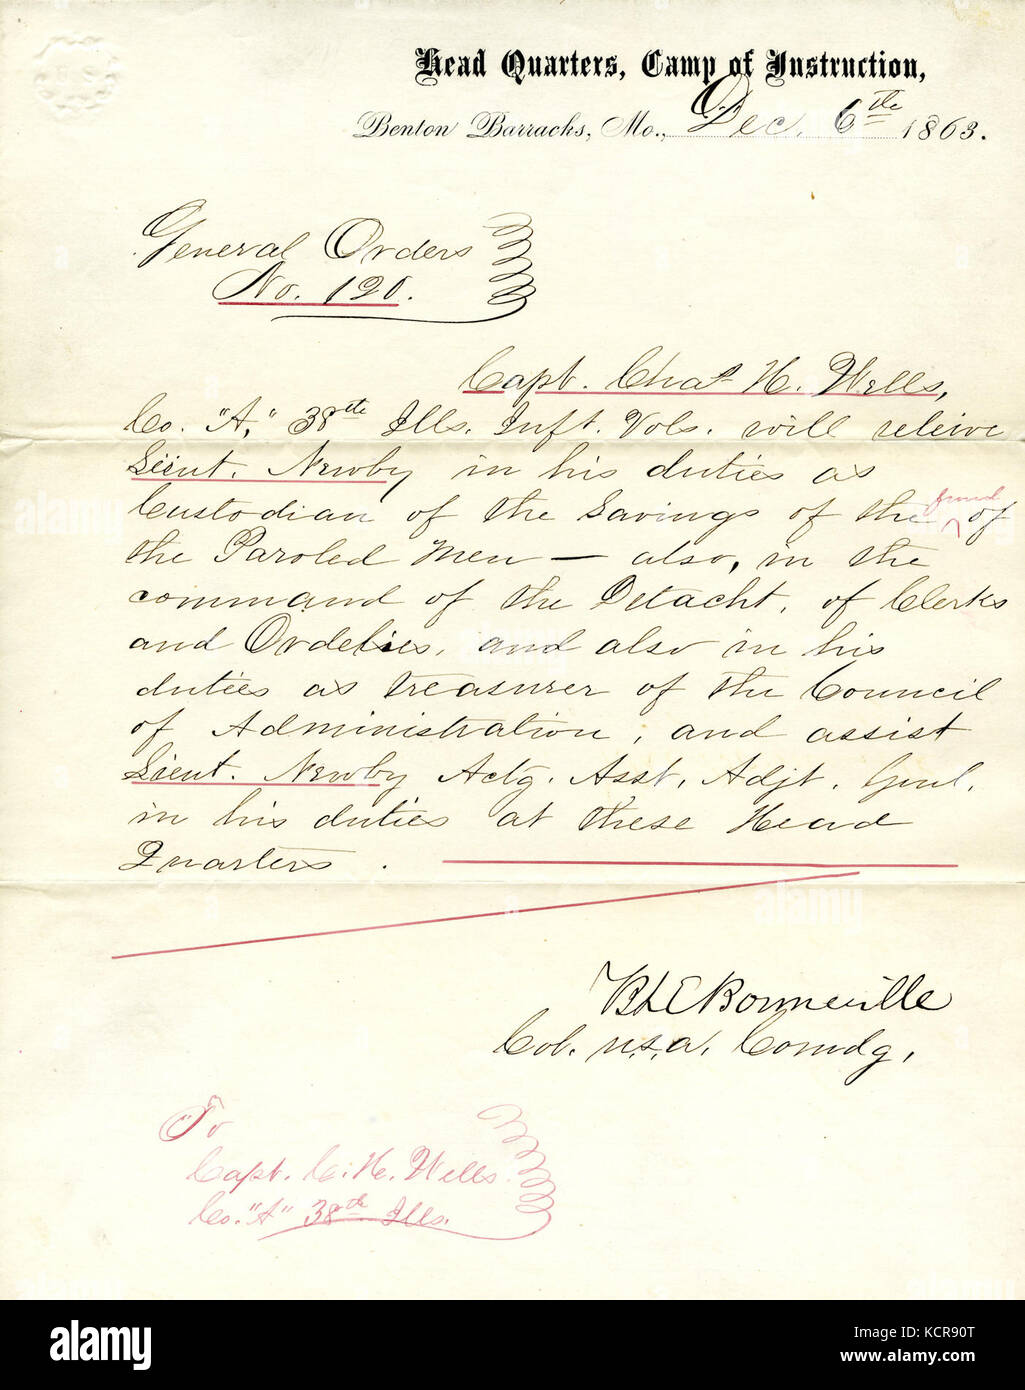 U.S.
Head Quarters, Camp of Instruction,
Benton Barracks, Mo., Dec. 6th 1863.
General Orders
No. 120.
Capt. Chas H. Wells,
Co. "A," 38th Ills. Inft. Vols. will releive
Lieut. Newby in his duties as
Custodian of the Savings of the fund of
the Paroled Men — also, in the
command of the Detacht. of Clerks
and Orderlies, and also in his
duties as treasurer of the Council
of Administration, and assist
Lieut. Newby Actg. Asst. Adjt. Genl.
in his duties at these Head
Quarters.
BLE Bonneville
Col. U.S.A. Comdg.
To
Capt. C. H. Wells
Co. "A" 38th Ills.
alamy
KCR90T
www.alamy.com